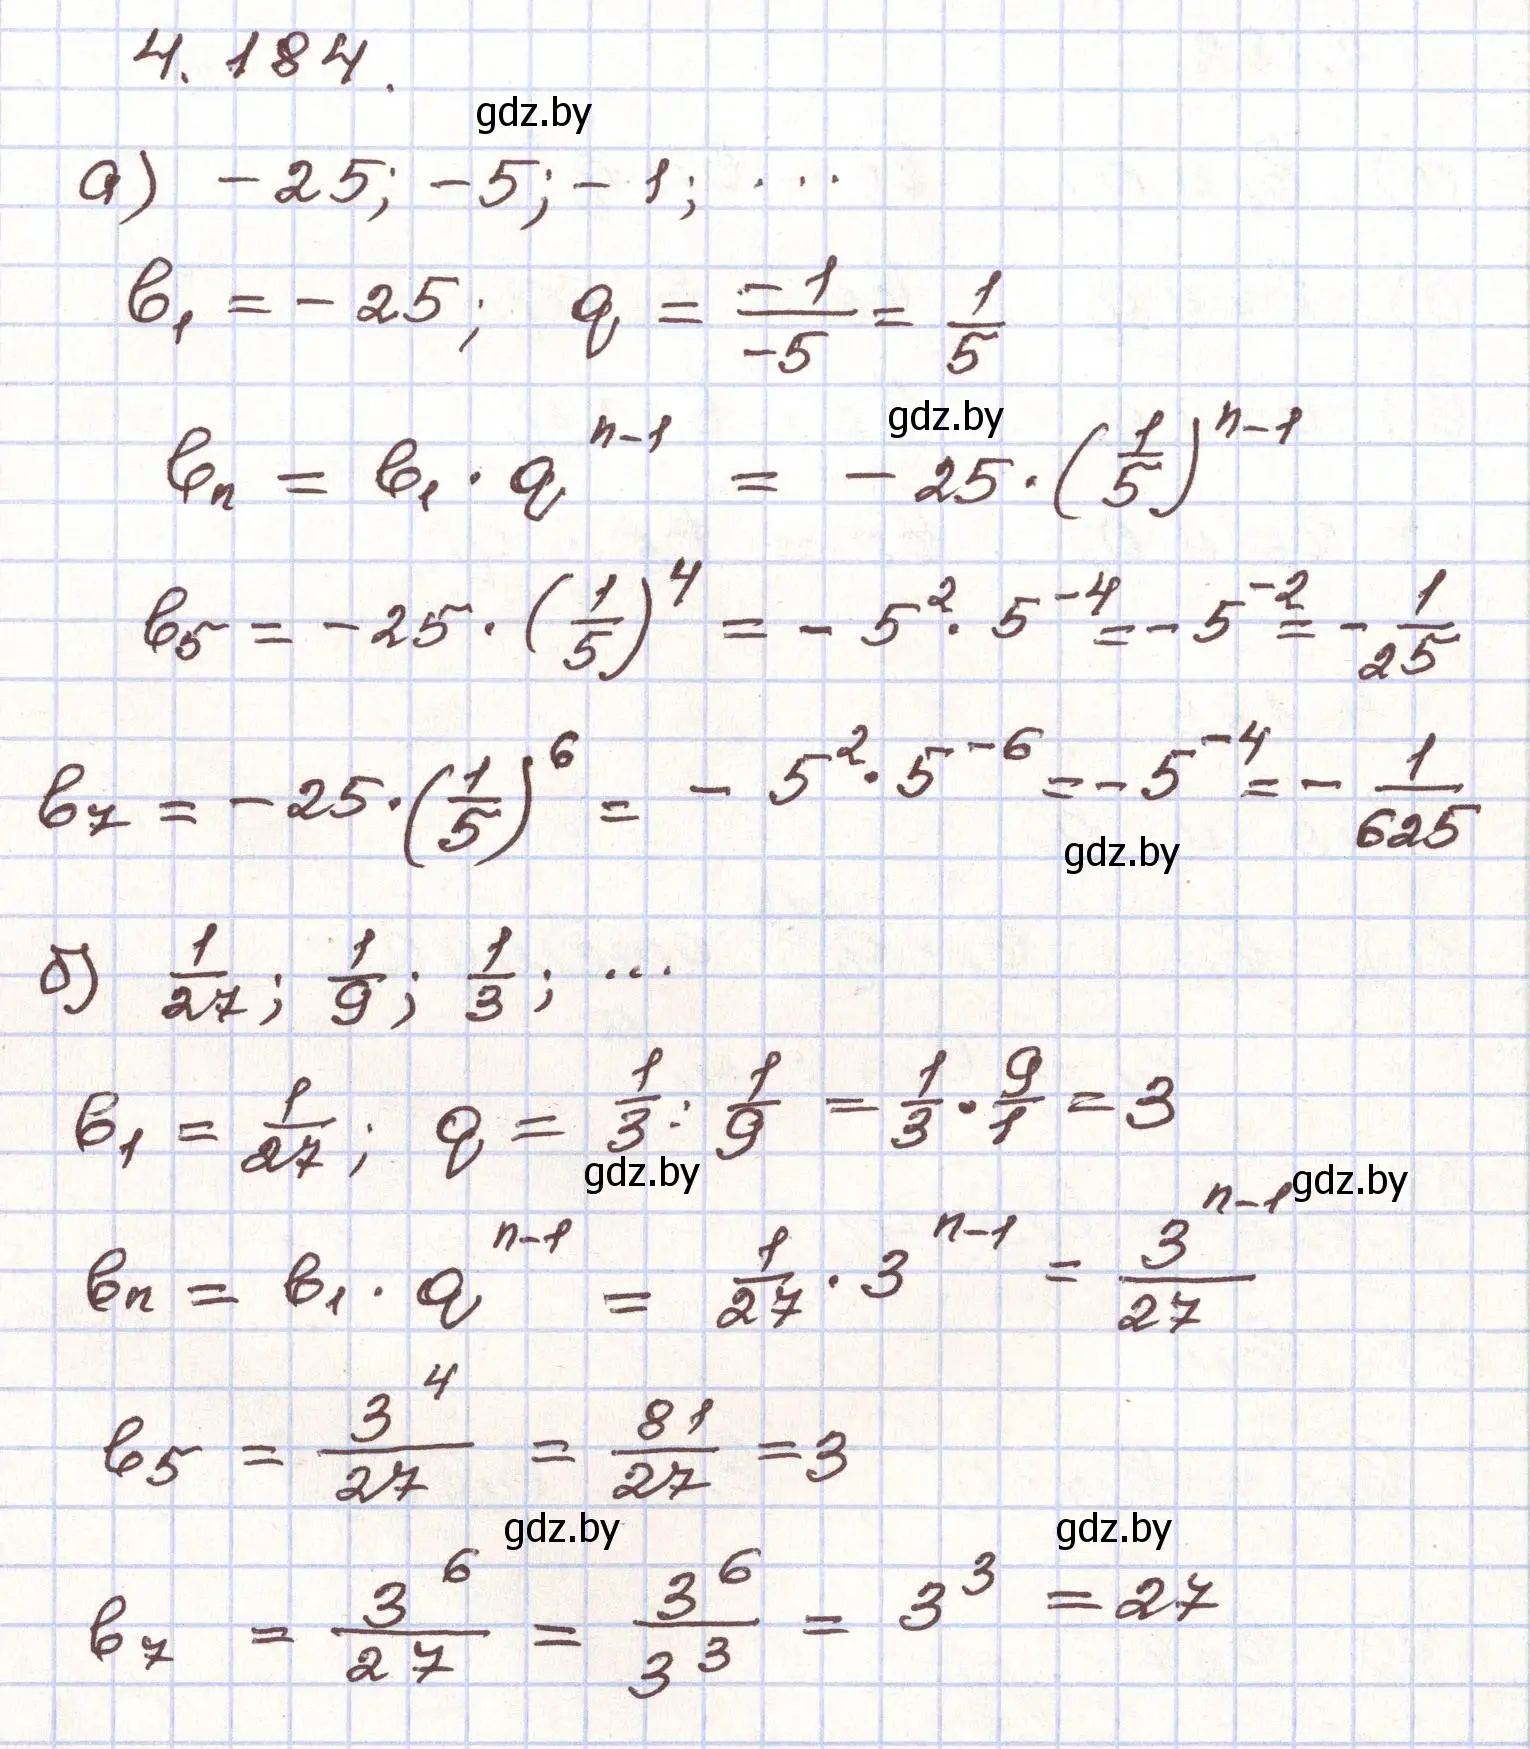 4.184.
gdz.by
а) -25; -5; -1; ...
b₁ = -25; q = -1/-5 = 1/5
gdz.by
bₙ = b₁ · qⁿ⁻¹ = -25 · (1/5)ⁿ⁻¹
b₅ = -25 · (1/5)⁴ = -5² · 5⁻⁴ = -5⁻² = -1/25
b₇ = -25 · (1/5)⁶ = -5² · 5⁻⁶ = -5⁻⁴ = -1/625
gdz.by
б) 1/27; 1/9; 1/3; ...
b₁ = 1/27; q = 1/3 : 1/9 = 1/3 · 9/1 = 3
gdz.by gdz.by
bₙ = b₁ · qⁿ⁻¹ = 1/27 · 3ⁿ⁻¹ = 3ⁿ⁻¹/27
b₅ = 3⁴/27 = 81/27 = 3
gdz.by gdz.by
b₇ = 3⁶/27 = 3⁶/3³ = 3³ = 27